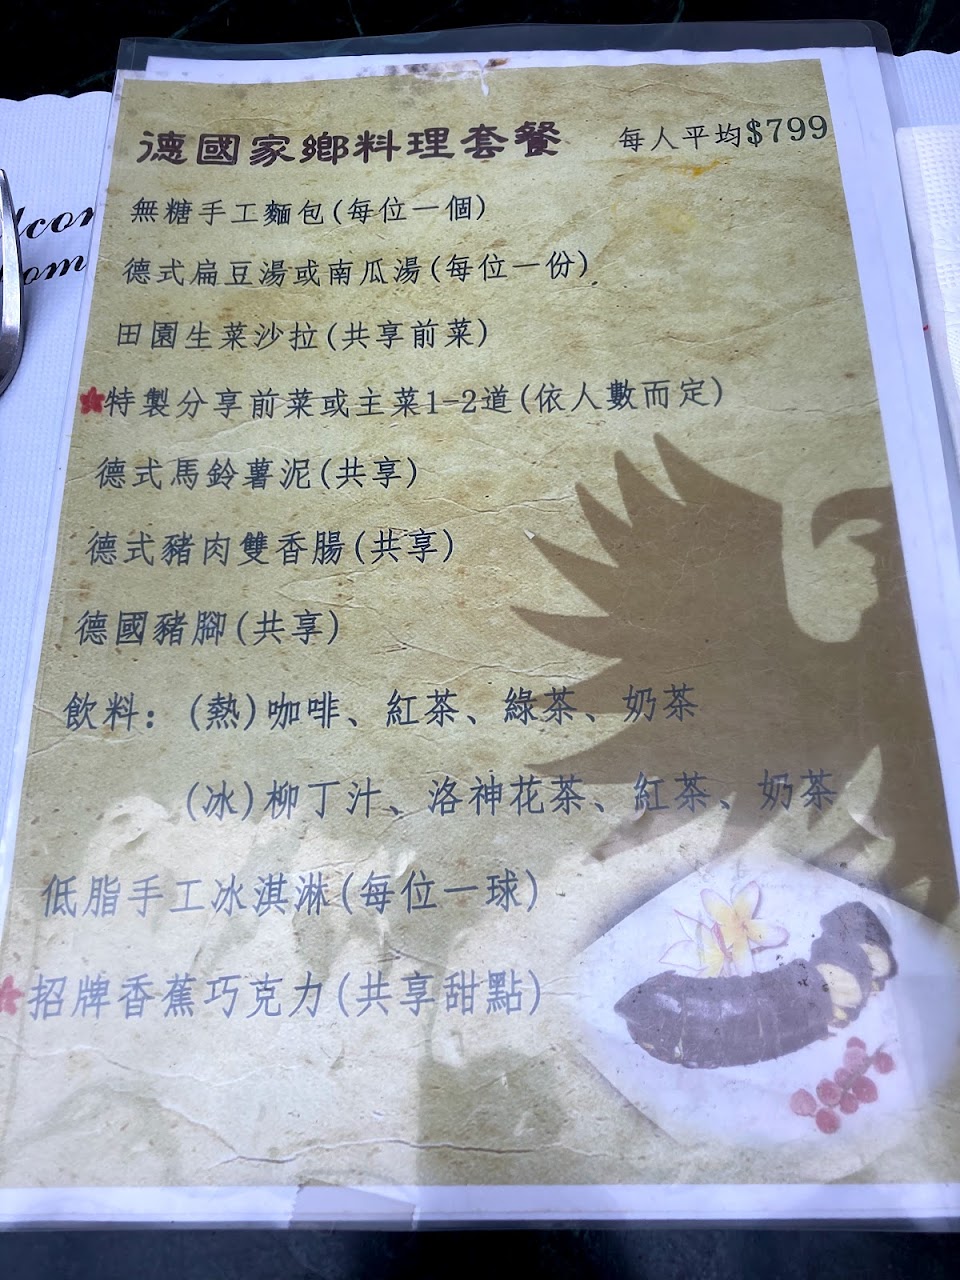 德國家鄉料理套餐 每人平均$799
無糖手工麵包(每位一個)
德式扁豆湯或南瓜湯(每位一份)
田園生菜沙拉(共享前菜)
特製分享前菜或主菜1-2道(依人數而定)
德式馬鈴薯泥(共享)
德式豬肉雙香腸(共享)
德國豬腳(共享)
飲料：(熱)咖啡、紅茶、綠茶、奶茶
(冰)柳丁汁、洛神花茶、紅茶、奶茶
低脂手工冰淇淋(每位一球)
招牌香蕉巧克力(共享甜點)